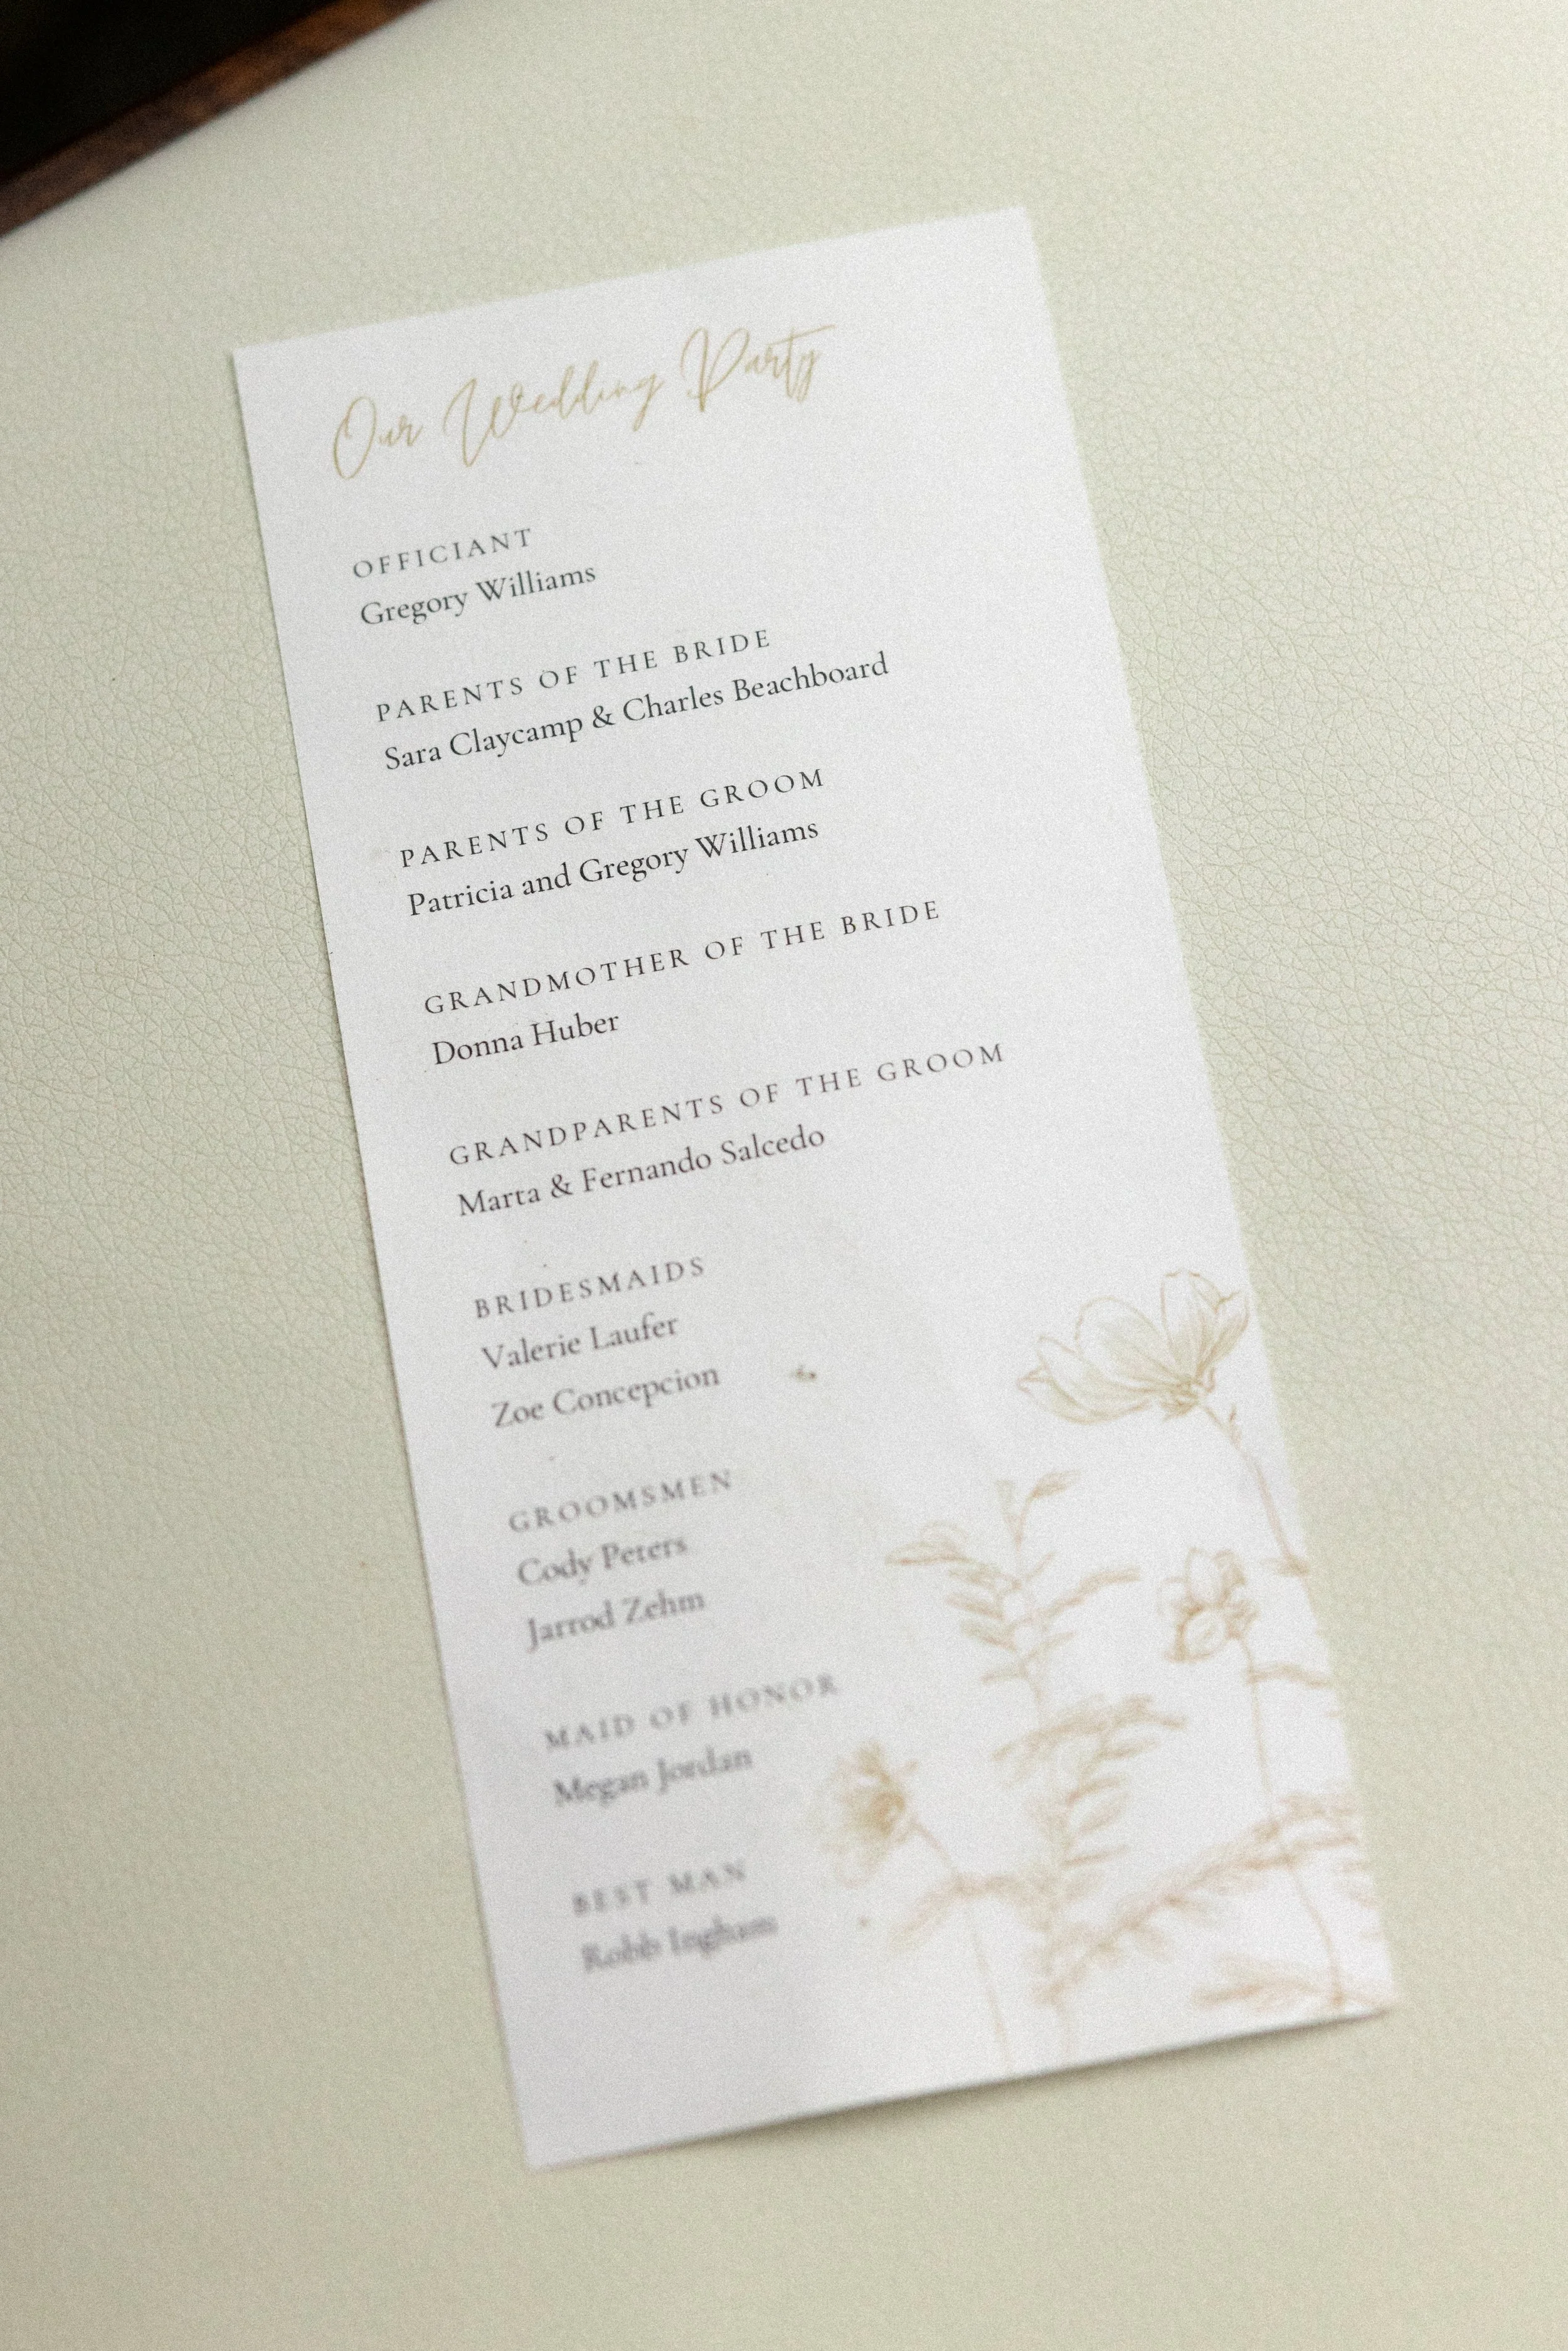 Our Wedding Party
OFFICIANT
Gregory Williams
PARENTS OF THE BRIDE
Sara Claycamp & Charles Beachboard
PARENTS OF THE GROOM
Patricia and Gregory Williams
GRANDMOTHER OF THE BRIDE
Donna Huber
GRANDPARENTS OF THE GROOM
Marta & Fernando Salcedo
BRIDESMAIDS
Valerie Laufer
Zoe Concepcion
GROOMSMEN
Cody Peters
Jarrod Zehm
MAID OF HONOR
Megan Jordan
BEST MAN
Robb Ingham